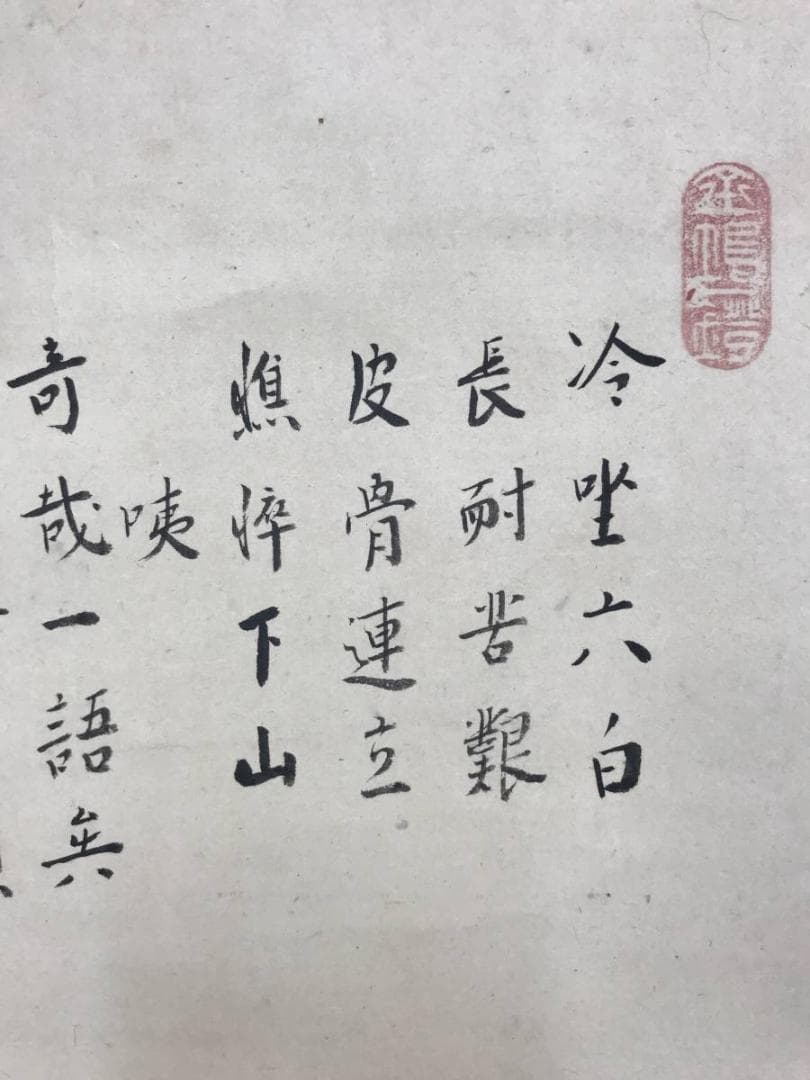 冷坐六白
長耐苦艱
皮骨連立
憔悴下山
咦
奇哉一語無